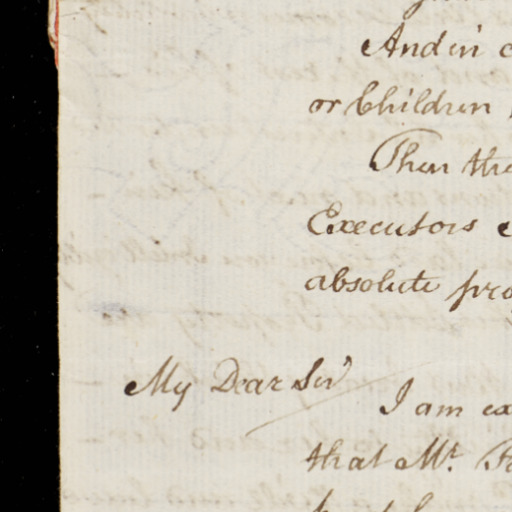 And in
or Children
Then
Executors
absolute
My Dear Sir
I am
that Mr.